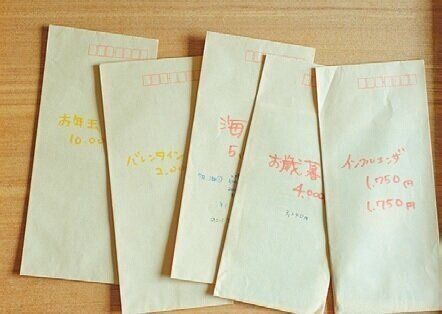 お年玉
10,00
バレンタイン
2,00
海
5,0
お歳暮
4,000
インフルエンザ
1,750円
1,750円